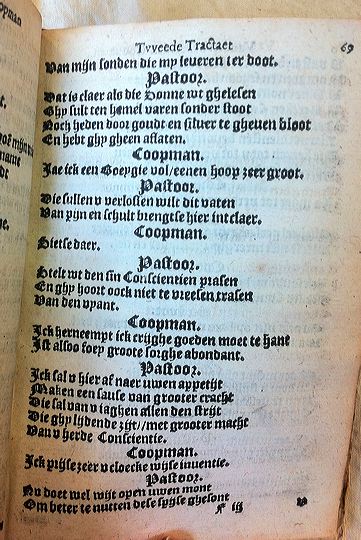 Tvveede Tractaet 69
Van mijn sonden die my leveren ter doot.
Pastoor.
Dat is claer als die Sonne wt ghelesen
Ghy sult ten hemel varen sonder stoot
Noch heden door goudt en silver te gheven bloot
En hebt ghy gheen aflaten.
Coopman.
Jae ick een Goeygie vol/eenen hoop zeer groot.
Pastoor.
Die sullen v verlossen wilt dit vaten
Van pijn en schult brengtse hier int claer.
Coopman.
Sietse daer.
Pastoor.
Stelt wt den sin Conscientien prasen
En ghy hoort oock niet te vreesen trasen
Van den vyant.
Coopman.
Ick herneempt ick crijghe goeden moet te hant
Ist alsoo soep groote sorghe abondant.
Pastoor.
Ick sal v hier af naer uwen appetijt
Maken een sause van grooter cracht
Die sal van v iaghen allen den strijt
Die ghy lijdende zijt//met grooter macht
Van v herde Conscientie.
Coopman.
Ick prijse zeer v cloecke wijse inventie.
Pastoor.
Nu doet wel wijt open uwen mont
Om beter te nutten dese spijse ghesont
F iij